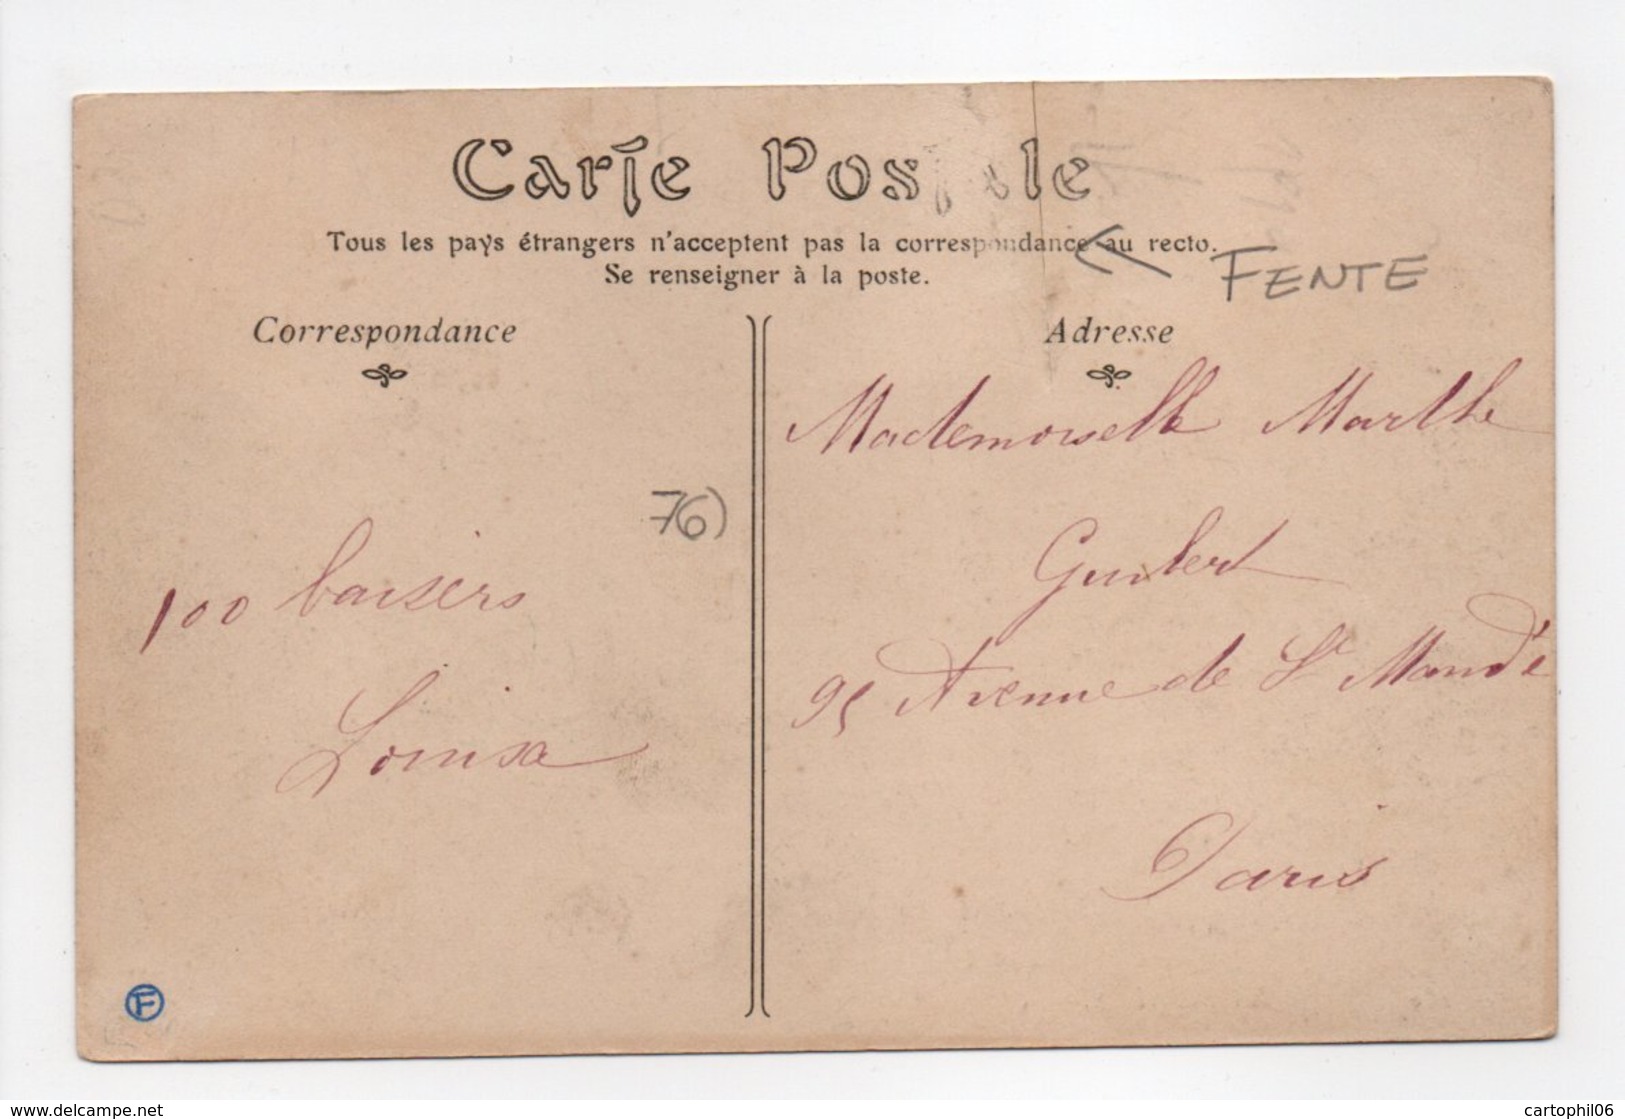 Carte Postale
Tous les pays étrangers n'acceptent pas la correspondance au recto.
Se renseigner à la poste.
FENTE
Correspondance
Adresse
Mademoiselle Marthe
76)
Guibert
100 baisers
95 Avenue de St Mandé
Louisa
Paris
F
www.delcampe.net
cartophil06